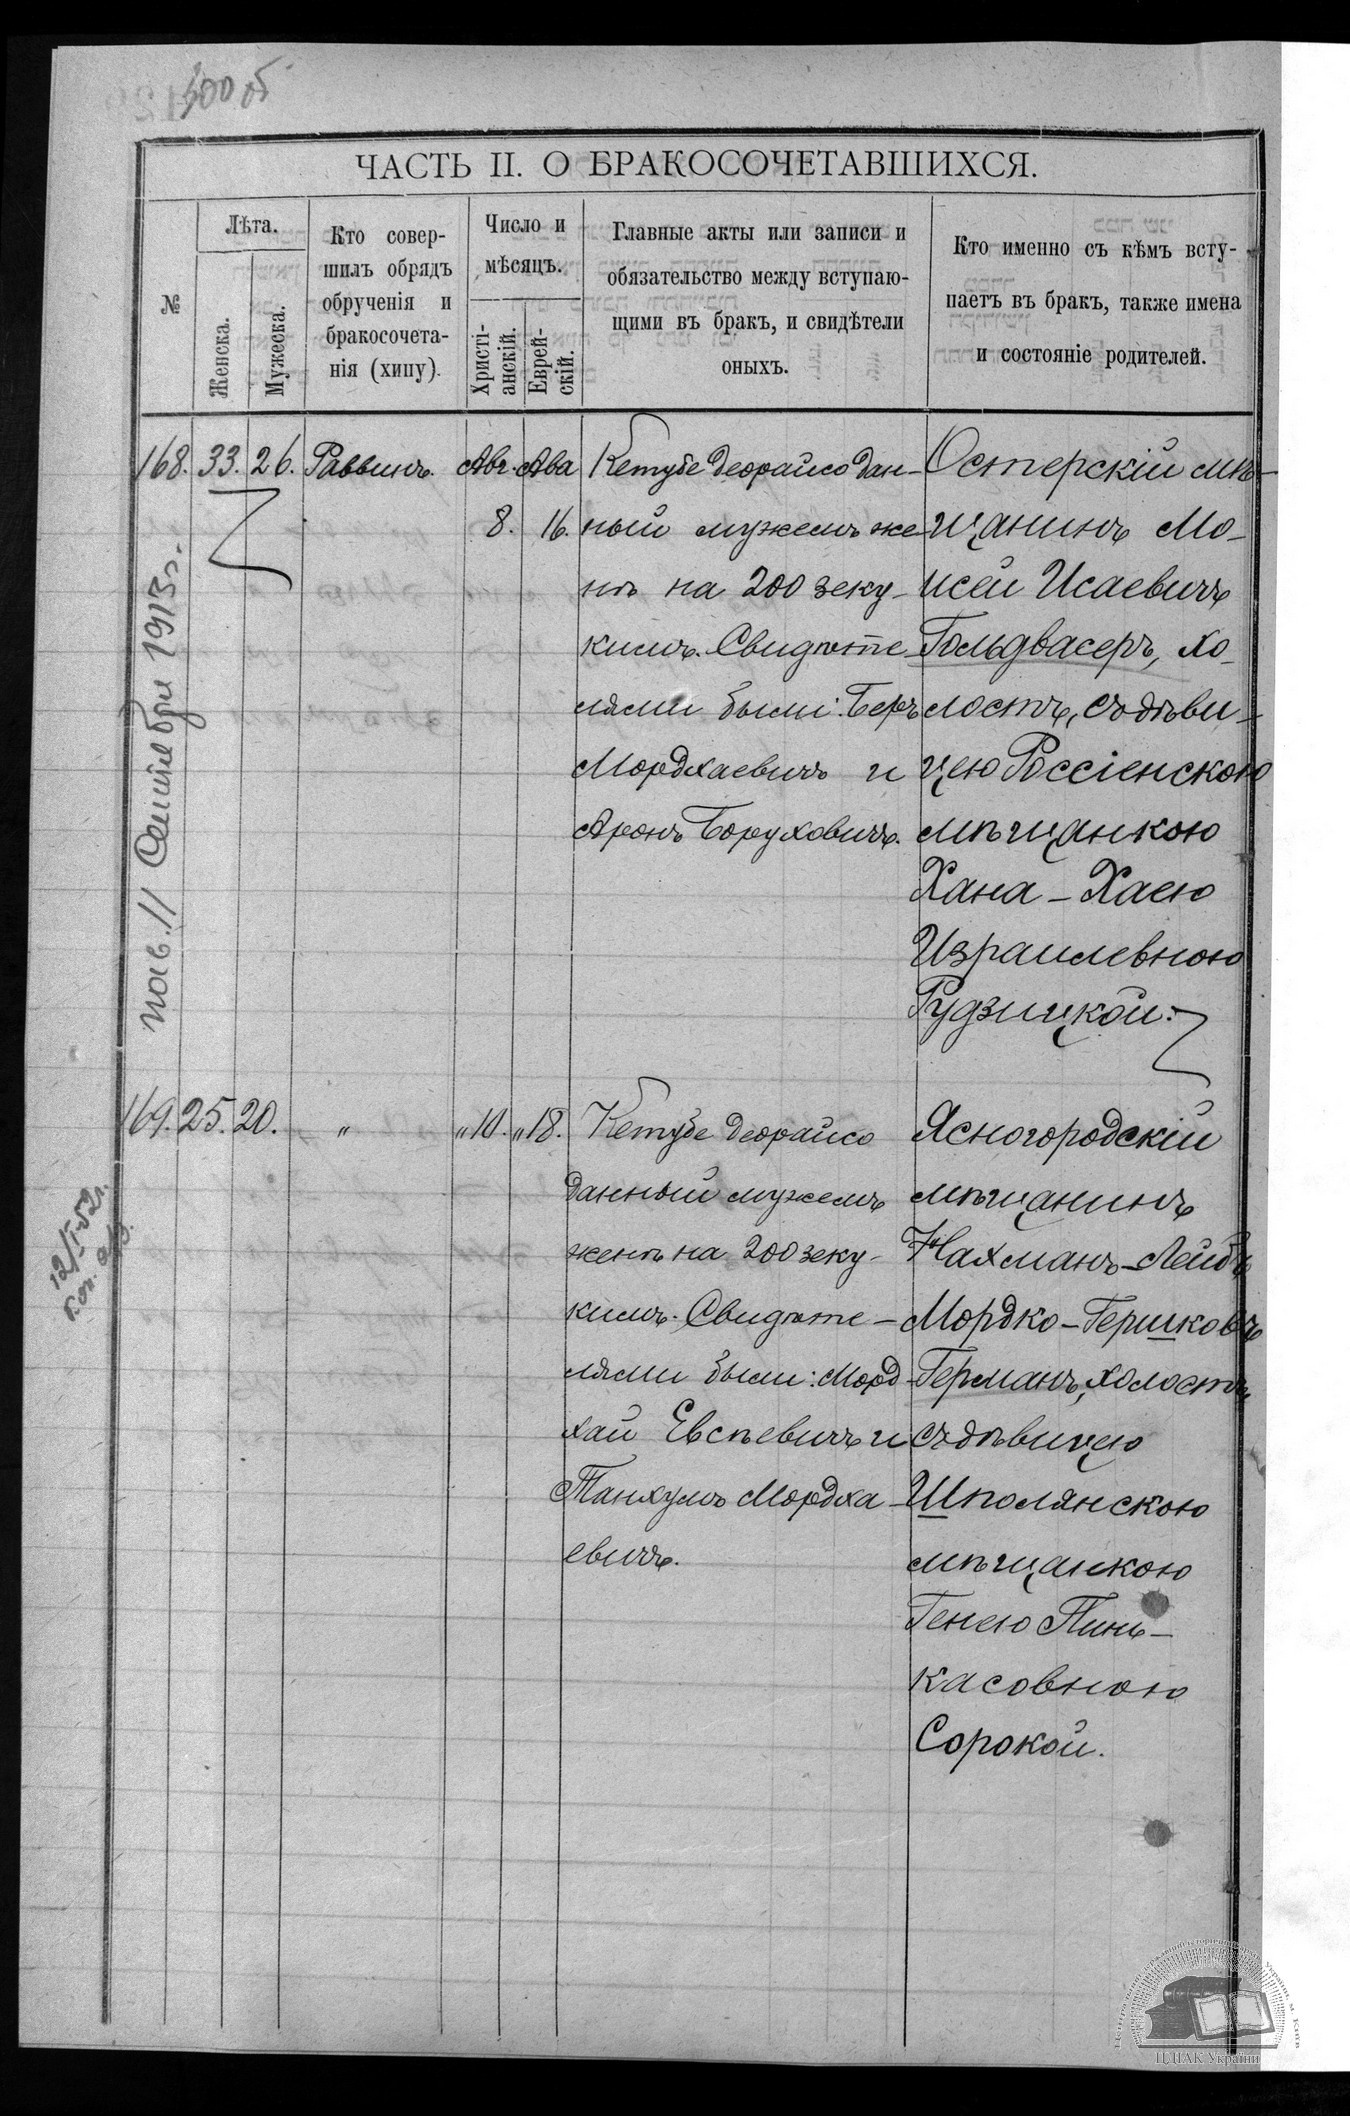 300 об
ЧАСТЬ II. О БРАКОСОЧЕТАВШИХСЯ.
№
Лѣта.
Женска.
Мужеска.
Кто совер-
шилъ обрядъ
обрученія и
бракосочета-
нія (хипу).
Число и
мѣсяцъ.
Христі-
анскій.
Еврей-
скій.
Главные акты или записи и
обязательство между вступаю-
щими въ бракъ, и свидѣтели
оныхъ.
Кто именно съ кѣмъ всту-
паетъ въ бракъ, также имена
и состояніе родителей.
168. 33. 26. Раввинъ. Авг. Ава
8. 16.
Кетубе деорайсо дан-
ный мужемъ же-
нѣ на 200 зеку-
кимъ. Свидѣте-
лями были: Беръ
Мордхаевичъ и
Аронъ Боруховичъ.
Остерскій мѣ-
щанинъ Мо-
исей Исаевичъ
Гольдвасеръ, хо-
лостъ, съ дѣви-
цею Россіенскою
мѣщанкою
Хана-Хаею
Израилевною
Рудзицкой.
11 Сентября 1913 г.
169. 25. 20. „ „10. „18.
Кетубе деорайсо
данный мужемъ
женѣ на 200 зеку-
кимъ. Свидѣте-
лями были: Морд-
хай Евсѣевичъ и
Танхумъ Мордха-
евичъ.
Ясногородскій
мѣщанинъ
Нахманъ-Лейбъ
Мордко-Гершковъ
Германъ, холостъ,
съ дѣвицею
Шполянскою
мѣщанкою
Генею Пинь-
касовною
Сорокой.
12/I-52г.
ЦДІАК України